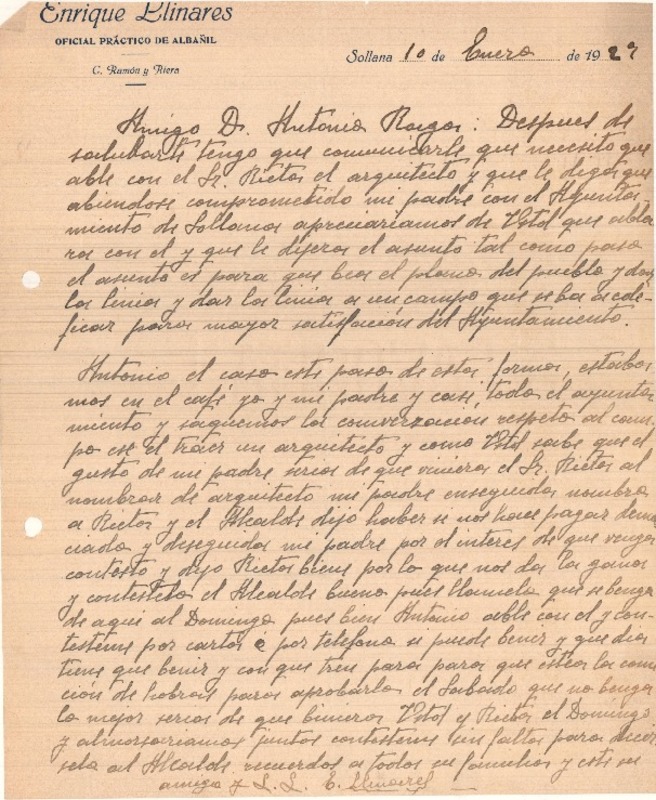 Enrique Llinares
OFICIAL PRÁCTICO DE ALBAÑIL
C. Ramón y Riera
Sollana 10 de Enero de 1929
Amigo D. Antonio Roigos: Despues de
saludarle tengo que comunicarle que necesito que
able con el Sr. Rieta el arquitecto y que le diga que
abiendose comprometido mi padre con el Ayunta
miento de Sollana apreciariamos de Vstd que abla
ra con el y que le dijera el asunto tal como pasa
el asunto es para que bea el plano del pueblo y dar
las linias y dar las linia a un campo que se ba a edi-
ficar para mayor satisfacción del Ayuntamiento.
Antonio el caso este pasa de esta forma, estaba
mos en el café yo y mi padre y casi todo el ayunta
miento y saquemos la converzación respeto al cam-
po ese el traer un arquitecto y como Vstd sabe que el
gusto de mi padre seria de que viniera el Sr. Rieta al
nombrar de arquitecto mi padre enseguida nombro
a Rieta y el Alcalde dijo haber si nos hace pagar dema
ciado y deseguida mi padre por el interes de que venga
contesto y dijo Rieta biene por lo que nos da la gana
y contestcto el Alcalde bueno pues llamelo que se benga
de aqui al Domingo pues bien Antonio able con el y con-
testeme por carta o por telefono si puede benir y que dia
tiene que benir y con que tren para que estea la comi
ción de hobras para aprobarlo el Sabado que no benga
lo mejor seria de que biniera Vstd y Rieta el Domingo
y almorsariamos juntos contesteme sin falta para decir
selo al Alcalde recuerdos a todos su familia y este su
amigo y S. S. E. Llinares